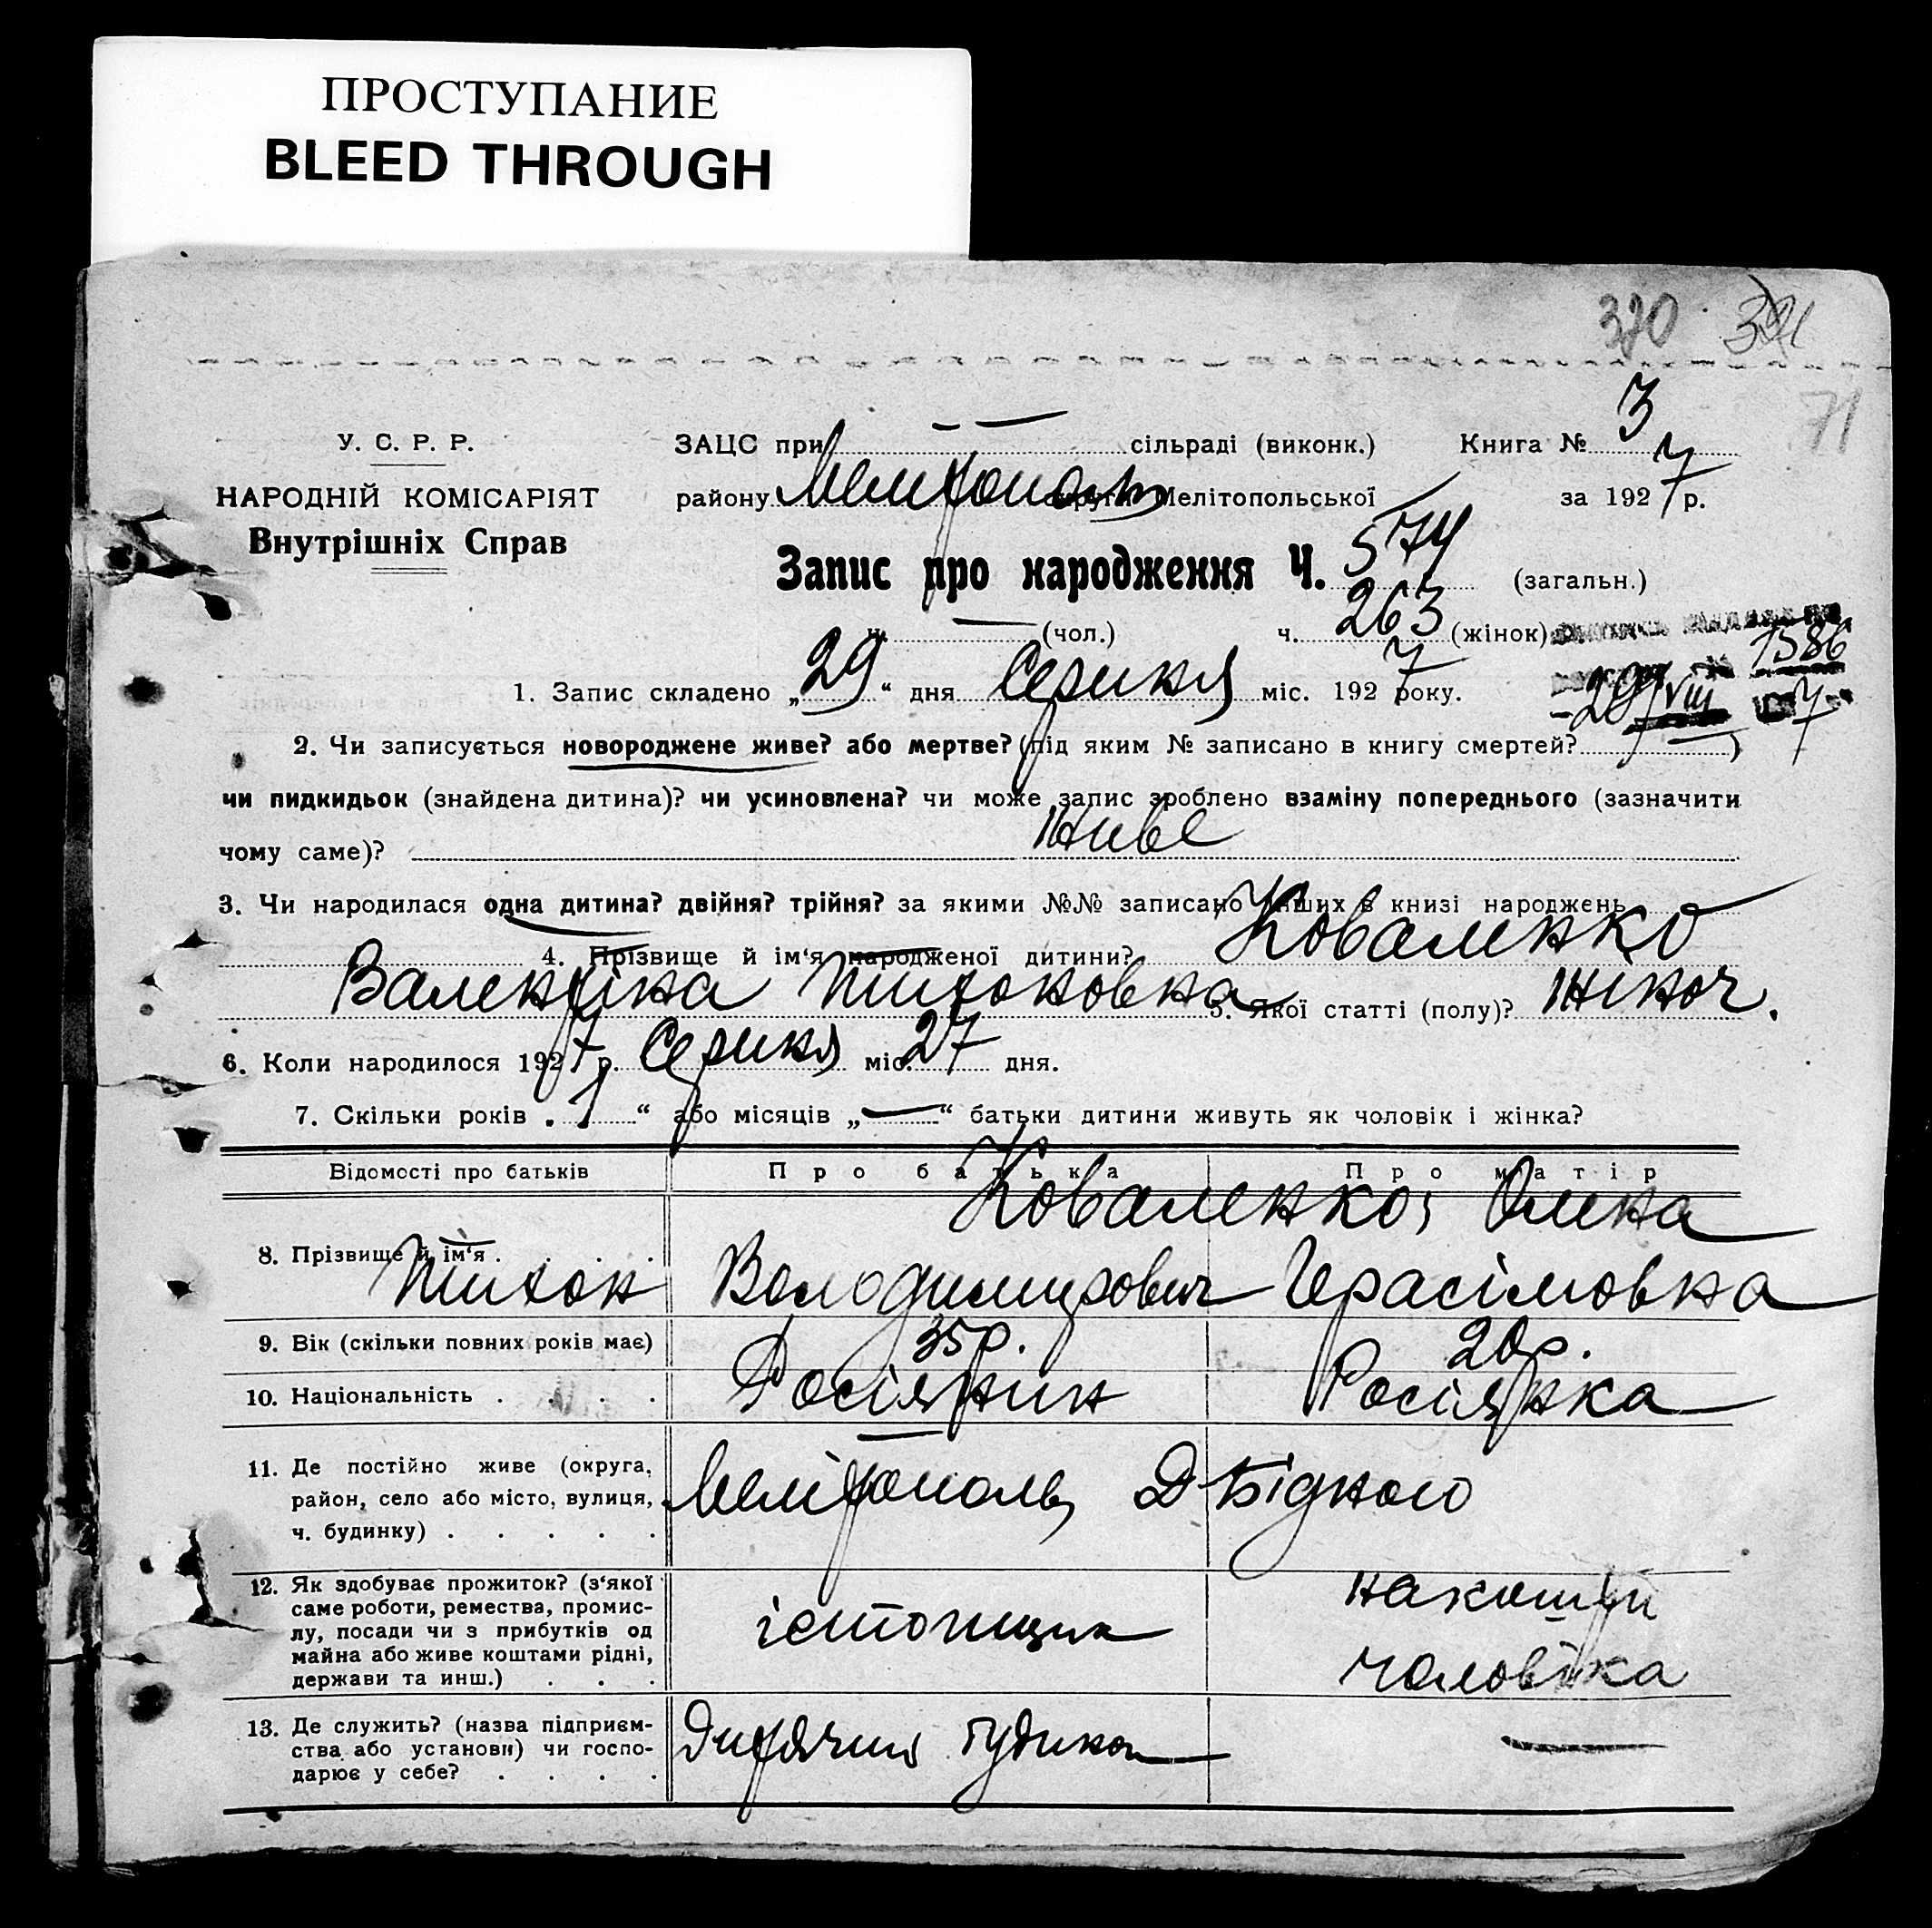 ПРОСТУПАНИЕ
BLEED THROUGH
320 321
71
У. С. Р. Р.
НАРОДНІЙ КОМІСАРІЯТ
Внутрішніх Справ
ЗАЦС при — — сільраді (виконк.) Книга № 3
району Мелітополь округи Мелітопольської за 1927 р.
Запис про народження Ч. 574 (загальн.)
ч. — (чол.) ч. 263 (жінок)
1586
29/VIII 7
1. Запис складено „29“ дня Серпня міс. 1927 року.
2. Чи записується новороджене живе? або мертве? (під яким № записано в книгу смертей? — )
чи пидкидьок (знайдена дитина)? чи усиновлена? чи може запис зроблено взаміну попереднього (зазначити
чому саме)? живе
3. Чи народилася одна дитина? двійня? трійня? за якими №№ записано інших в книзі народжень
4. Прізвище й ім‘я народженої дитини? Коваленко
Валентіна Тихоновна 5. Якої статті (полу)? жіноч.
6. Коли народилося 1927 р. Серпня міс. 27 дня.
7. Скільки років „1“ або місяців „—“ батьки дитини живуть як чоловік і жінка?
Відомості про батьків Про батька Про матір
Коваленко, Олена
8. Прізвище й ім‘я . . . . Тихон Володимирович Герасімовна
9. Вік (скільки повних років має) 35 р. 20 р.
10. Національність . . . . Росіянин Росіянка
11. Де постійно живе (округа,
район, село або місто, вулиця,
ч. будинку) . . . . .
Мелітополь, Д-Бідного
12. Як здобуває прожиток? (з‘якої
саме роботи, ремества, промис-
лу, посади чи з прибутків од
майна або живе коштами рідні,
держави та инш.) . . .
істопщик
на кошти
чоловіка
13. Де служить? (назва підприєм-
ства або установи) чи госпо-
дарює у себе? . . . .
Дитячий будинок —